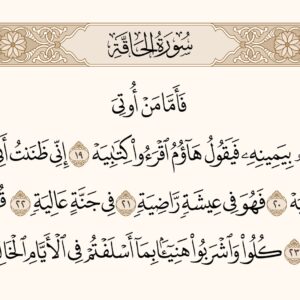 سُورَةُ الحَاقَّةِ
فَأَمَّا مَنْ أُوتِىَ
بِيَمِينِهِۦ فَيَقُولُ هَآؤُمُ ٱقْرَءُوا۟ كِتَٰبِيَهْ ١٩ إِنِّى ظَنَنتُ
٢٠ فَهُوَ فِى عِيشَةٍ رَّاضِيَةٍ ٢١ فِى جَنَّةٍ عَالِيَةٍ ٢٢
٢٣ كُلُوا۟ وَٱشْرَبُوا۟ هَنِيٓـًٔۢا بِمَآ أَسْلَفْتُمْ فِى ٱلْأَيَّامِ